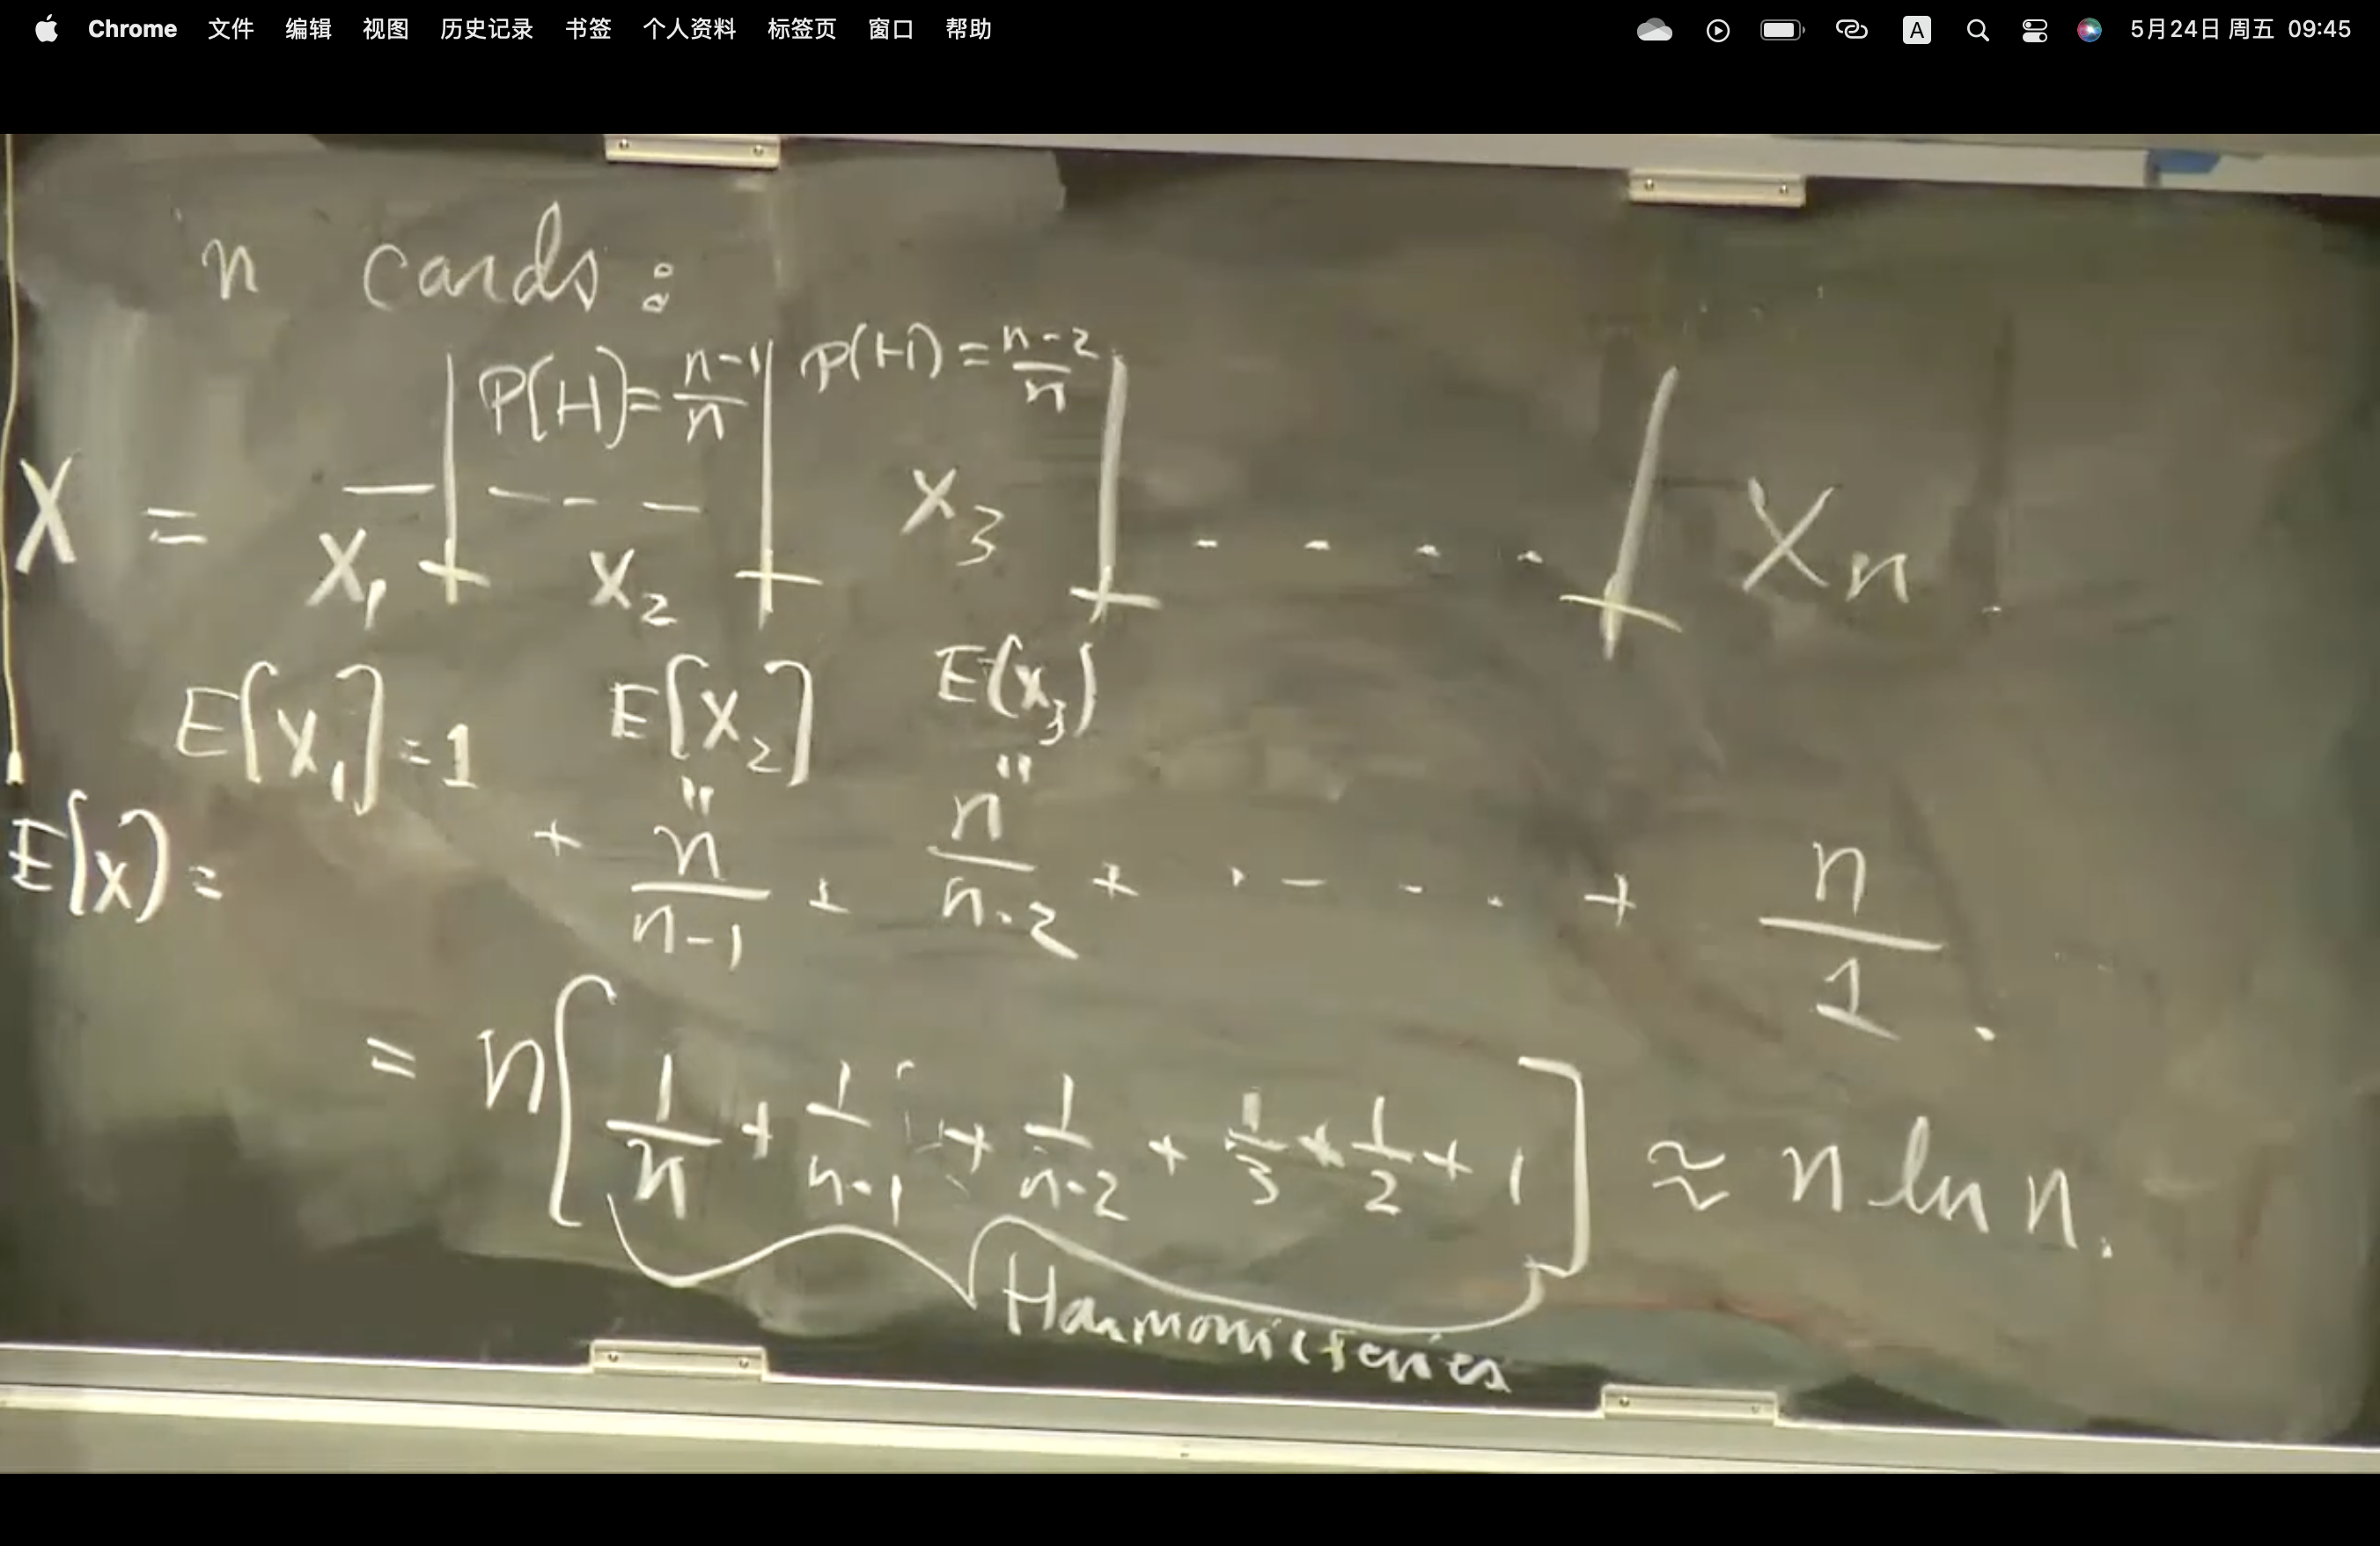 Chrome 文件 编辑 视图 历史记录 书签 个人资料 标签页 窗口 帮助 A 5月24日 周五 09:45
n cards:
P(H)= n-1/n P(H) = n-2/n
X = X₁ + X₂ + X₃ + .... + Xₙ.
E[X₁]=1 E[X₂] E(X₃)
" "
E(X) = + n/n-1 + n/n-2 + ..... + n/1.
= n[1/n + 1/n-1 + 1/n-2 + 1/3 + 1/2 + 1] ≈ n ln n.
Harmonic series